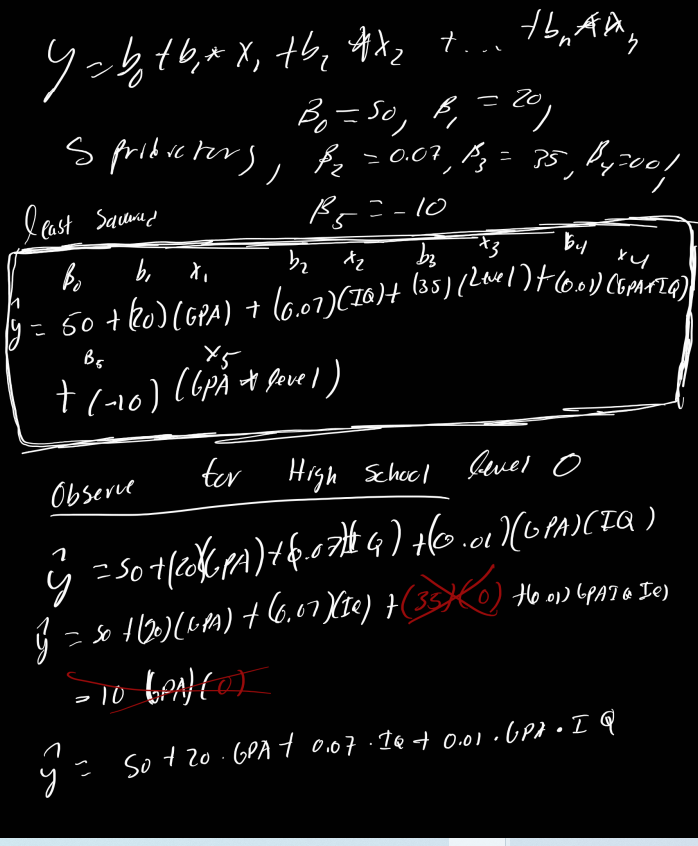 y = b₀ + b₁ * x₁ + b₂ * x₂ + ... + bₙ * xₙ
B₀ = 50, β₁ = 20,
5 pridictors, β₂ = 0.07, β₃ = 35, β₄ = 001,
least Squared β₅ = -10
B₀ b₁ x₁ b₂ x₂ b₃ x₃ b₄ x₄
ŷ = 50 + (20)(GPA) + (0.07)(IQ) + (35)(Level) + (0.01)(GPA*IQ)
B₅ x₅
+ (-10) (GPA * level)
Observe for High School level 0
ŷ = 50 + (20)(GPA) + (0.07)(IQ) + (0.01)(GPA)(IQ)
ŷ = 50 + (20)(GPA) + (0.07)(IQ) + (35)(0) + (0.01)
= 10 (GPA)(0)
ŷ = 50 + 20 . GPA + 0.07 . IQ + 0.01 . GPA . IQ